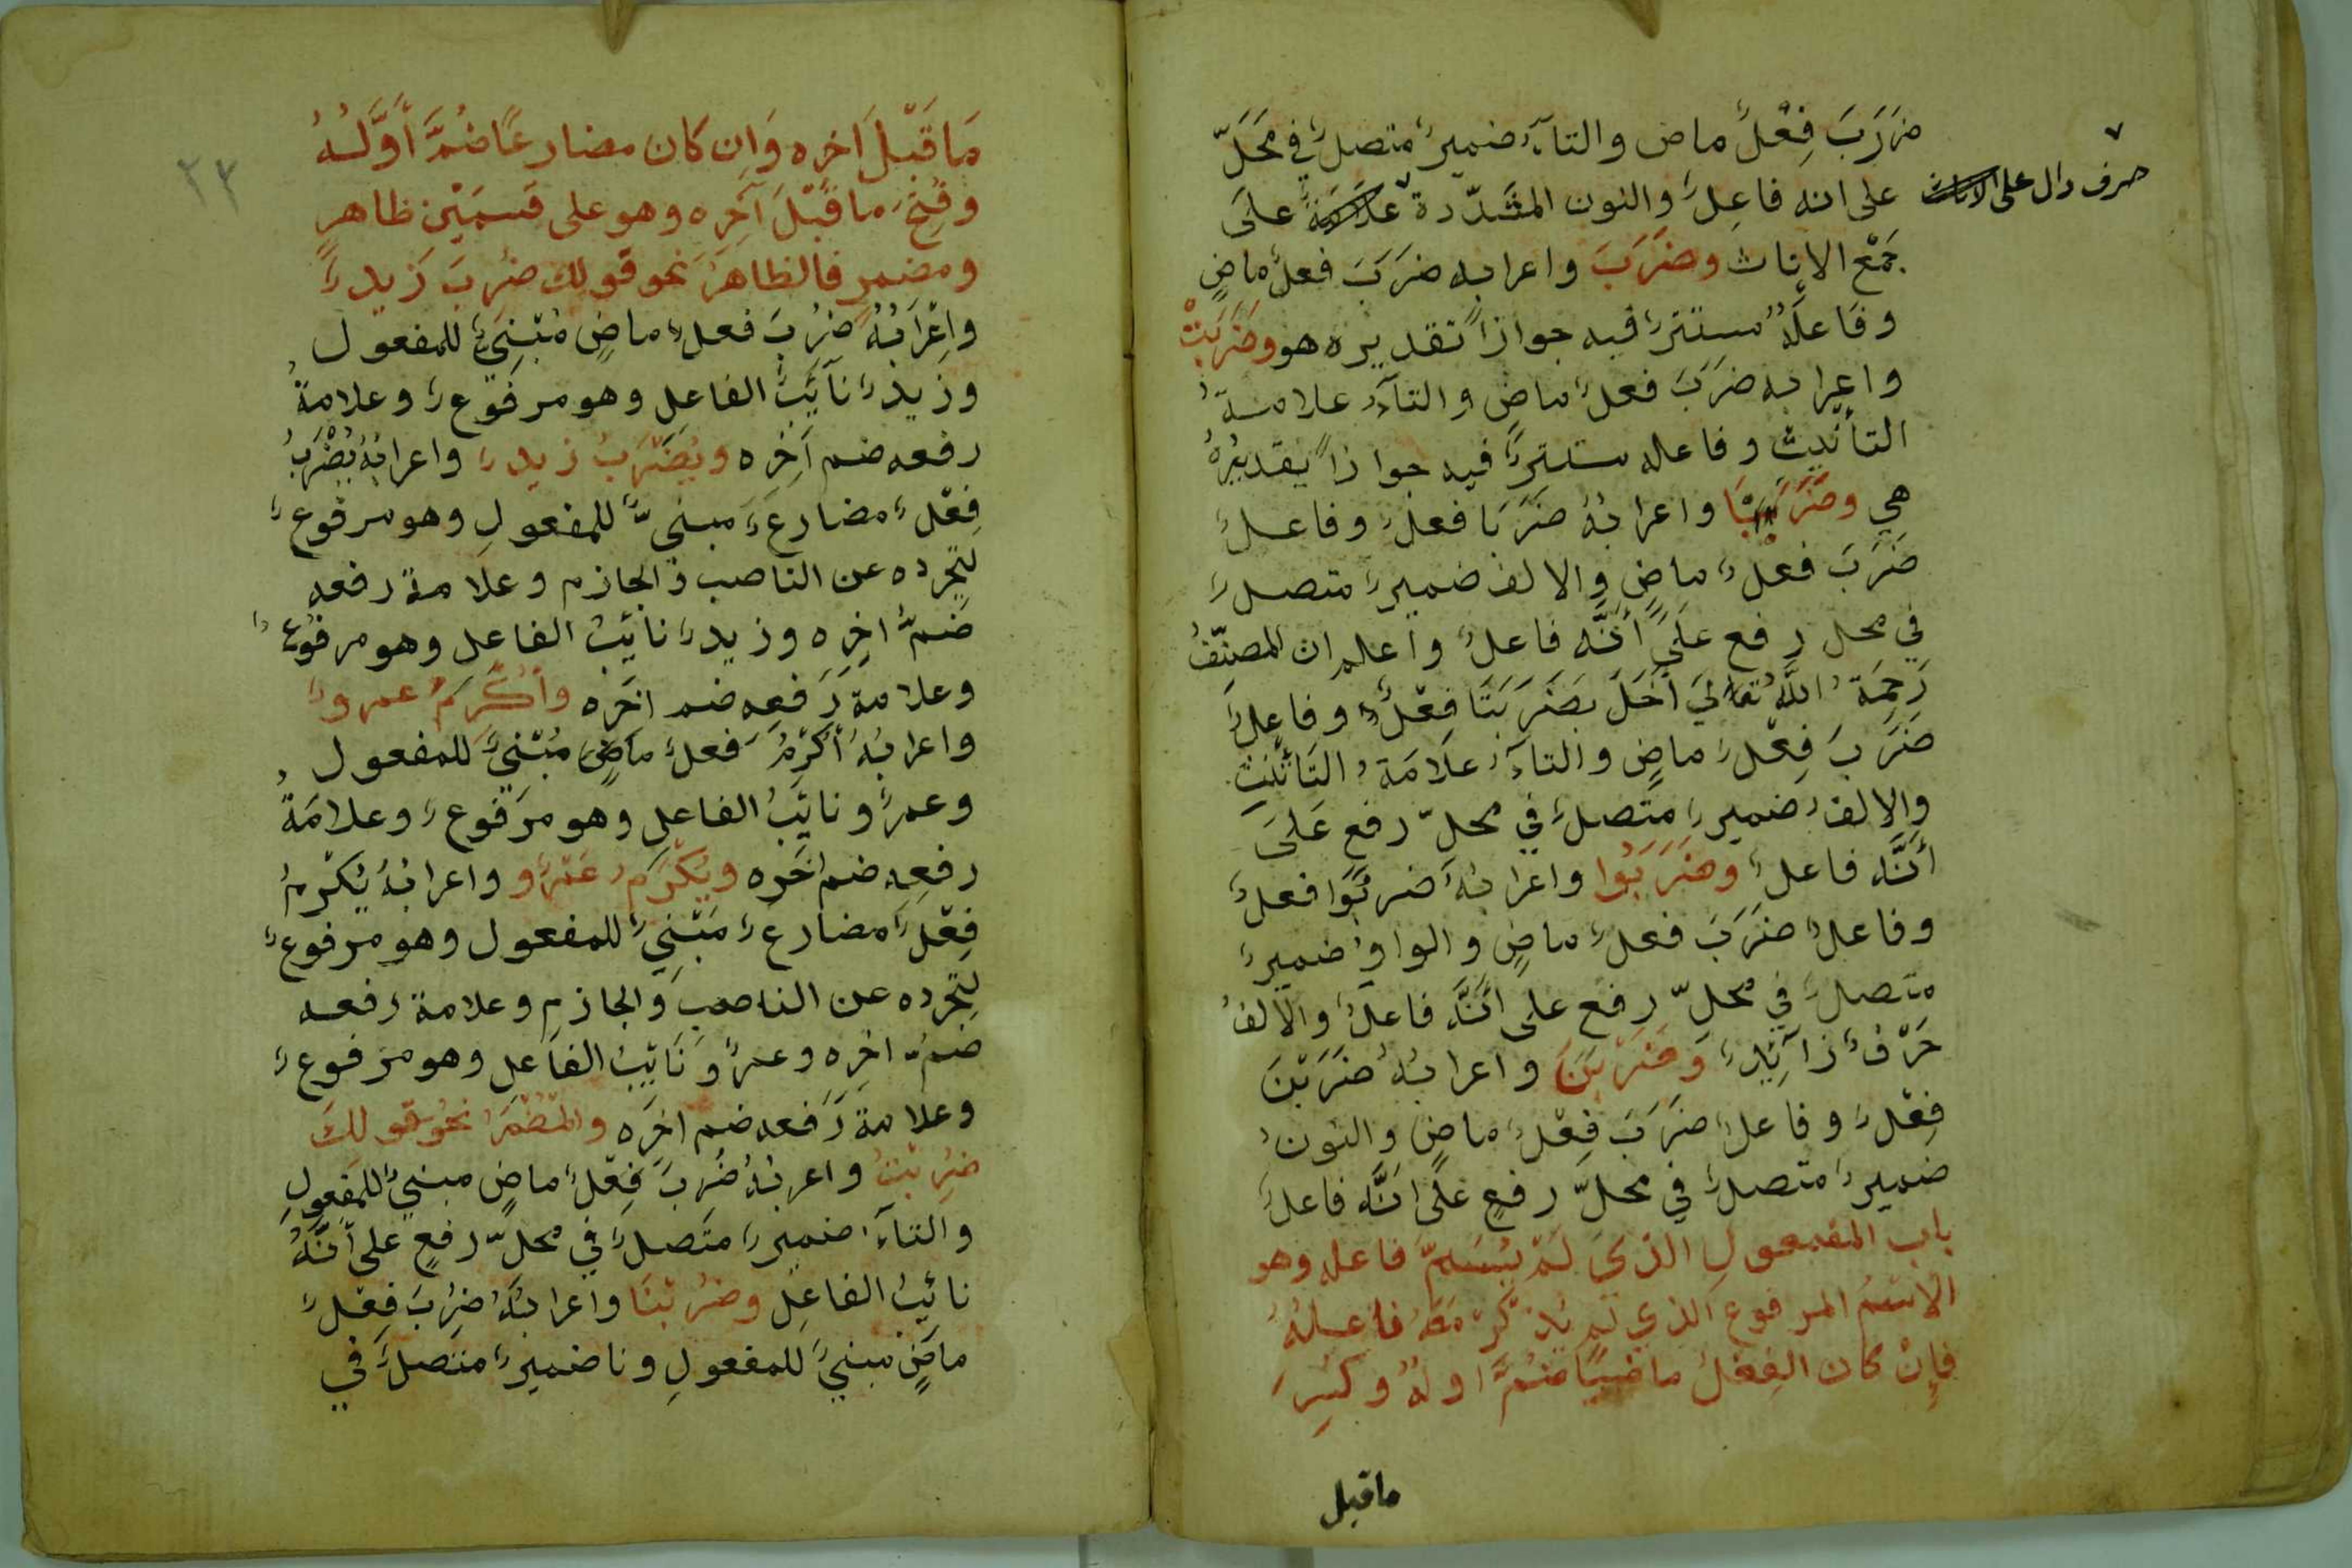 ضَرَبَ فِعْلٌ ماض والتآءُ ضميرٌ متصلٌ في مَحَلّ
على انه فاعِلٌ والنون المشَدّدة علامة علَى
حرف دال على الاناث
جَمْع الاناث وضَرَبَ واعرابه ضَرَبَ فعلٌ ماضٍ
وفاعلهُ مستترٌ فيه جوازاً تقديره هو وضَرَبَتْ
واعرابه ضَرَبَ فعلٌ ماضٍ والتآءُ علامةُ
التأنيث وفاعله مستترٌ فيه جوازاً تقديرُهُ
هي وضَرَبَتَا واعرابهُ ضَرَبَا فعلٌ وفاعلٌ
ضَرَبَ فعْلٌ ماضٍ والالف ضميرٌ متصلٌ
في محل رفع علَى أَنَّه فاعلٌ واعلم ان المصنّفُ
رَحِمَهُ اللَّهُ تعالىَ اَخَلَّ بضَرَبَتَا فِعْلٌ وفاعِلٌ
ضَرَبَ فِعْلٌ ماضٍ والتآءُ علَامَةُ التَأنيث
والالفُ ضميرٌ متصلٌ في محلّ رفعٍ عَلىَ
أَنَّه فاعلٌ وضَرَبُوا واعرابهُ ضربُوا فعلٌ
وفاعلٌ ضَرَبَ فعلٌ ماضٍ والواوُ ضميرٌ
متصلٌ في محلّ رفع على أنَّه فاعلٌ والالفُ
حَرْفٌ زآئِدٌ وَضَرَبْنَ واعرابهُ ضَرَبْنَ
فِعْلٌ وفاعلٌ ضَرَبَ فِعْلٌ ماضٍ والنونُ
ضميرٌ متصلٌ في محلّ رفعٍ علَى انَّه فاعلٌ
باب المفعولِ الذي لَمْ يُسَمّ فاعله وهو
الاسْمُ المرفوع الذي لم يُذكَرْ مَعَهُ فاعلهُ
فإنْ كان الفِعْلُ ماضيًا ضُمَّ اولهُ وكُسِرَ
ماقبل
٢٣
مَا قَبْلَ اَخِرِه وَاِن كان مضارعًا ضُمَّ أَوَّلهُ
وفُتِحَ ما قَبْلَ آخِرِه وهو على قسمَيْن ظاهرٍ
ومضمرٍ فالظاهرُ نحو قولك ضُرِبَ زَيدٌ
واِعْرَابُهُ ضُرِبَ فعلٌ ماضٍ مَبْنِيٌّ للمفعول
وزيدٌ نآئِبُ الفاعلِ وهو مرفوعٌ وعلامةُ
رفعه ضم آخِرِه ويُضْرَبُ زيدٌ واعرابُهُ يُضْرَبُ
فِعْلٌ مضارعٌ مبنيٌّ للمفعولِ وهو مرفوعٌ
لتجرده عن الناصب والجازم وعلامة رفعه
ضَمُّ اخِرِه وزيدٌ نائِبُ الفاعل وهو مرفوعٌ
وعلامة رَفعِه ضم اخَره وأُكْرِمَ عمروٌ
واعرابُهُ أُكْرِمَ فعلٌ ماضٍ مَبْنيٌّ للمفعول
وعمرٌو نائِبُ الفاعل وهو مَرفوعٌ وعلامَةُ
رفعِه ضم اخَره ويُكْرَمُ عَمْرٌو واعرابُهُ يُكْرَمُ
فِعْلٌ مضارعٌ مَبْنِيٌّ للمفعول وهو مرفوعٌ
لِتَجرده عن الناصب وَالجازمِ وعلامة رفعه
ضمُّ اخِرِه وعمرٌو نَائِبُ الفاعلِ وهو مرفوعٌ
وعلامة رَفعه ضم اخَره والمُضْمَرُ نحوُ قولكَ
ضُرِبْتُ واعربُهُ ضُرِبَ فِعْلٌ ماضٍ مبنيٌّ للمفعولِ
والتآءُ ضميرٌ متَصلٌ في محلّ رفعٍ على أنَّهُ
نائِبُ الفاعِل وضُرِبْنَا واعرابهُ ضُرِبَ فِعْلٌ
ماضٍ مبنيٌّ للمفعولِ ونا ضميرٌ متصلٌ في